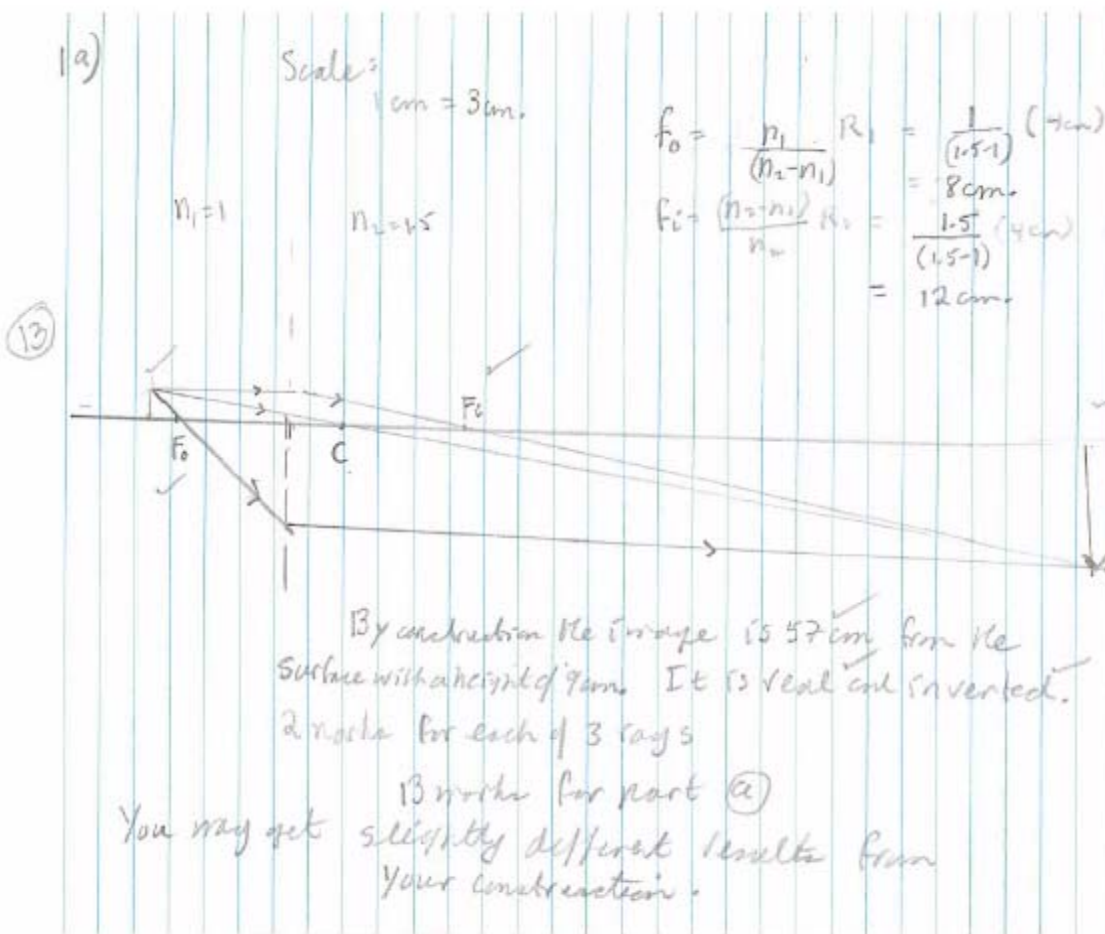 1a)
Scale:
1 cm = 3cm.
f₀ = n₁/(n₂-n₁) R₁ = 1/(1.5-1) (4cm)
= 8cm.
n₁=1
n₂=1.5
= 1.5/(1.5-1) (4cm)
= 12cm.
13
F₀
C
Fi
By construction the image is 57cm from the
surface with a height of 9cm. It is real and inverted.
2 marks for each of 3 rays
13 marks for part (a)
You may get slightly different results from
your construction.